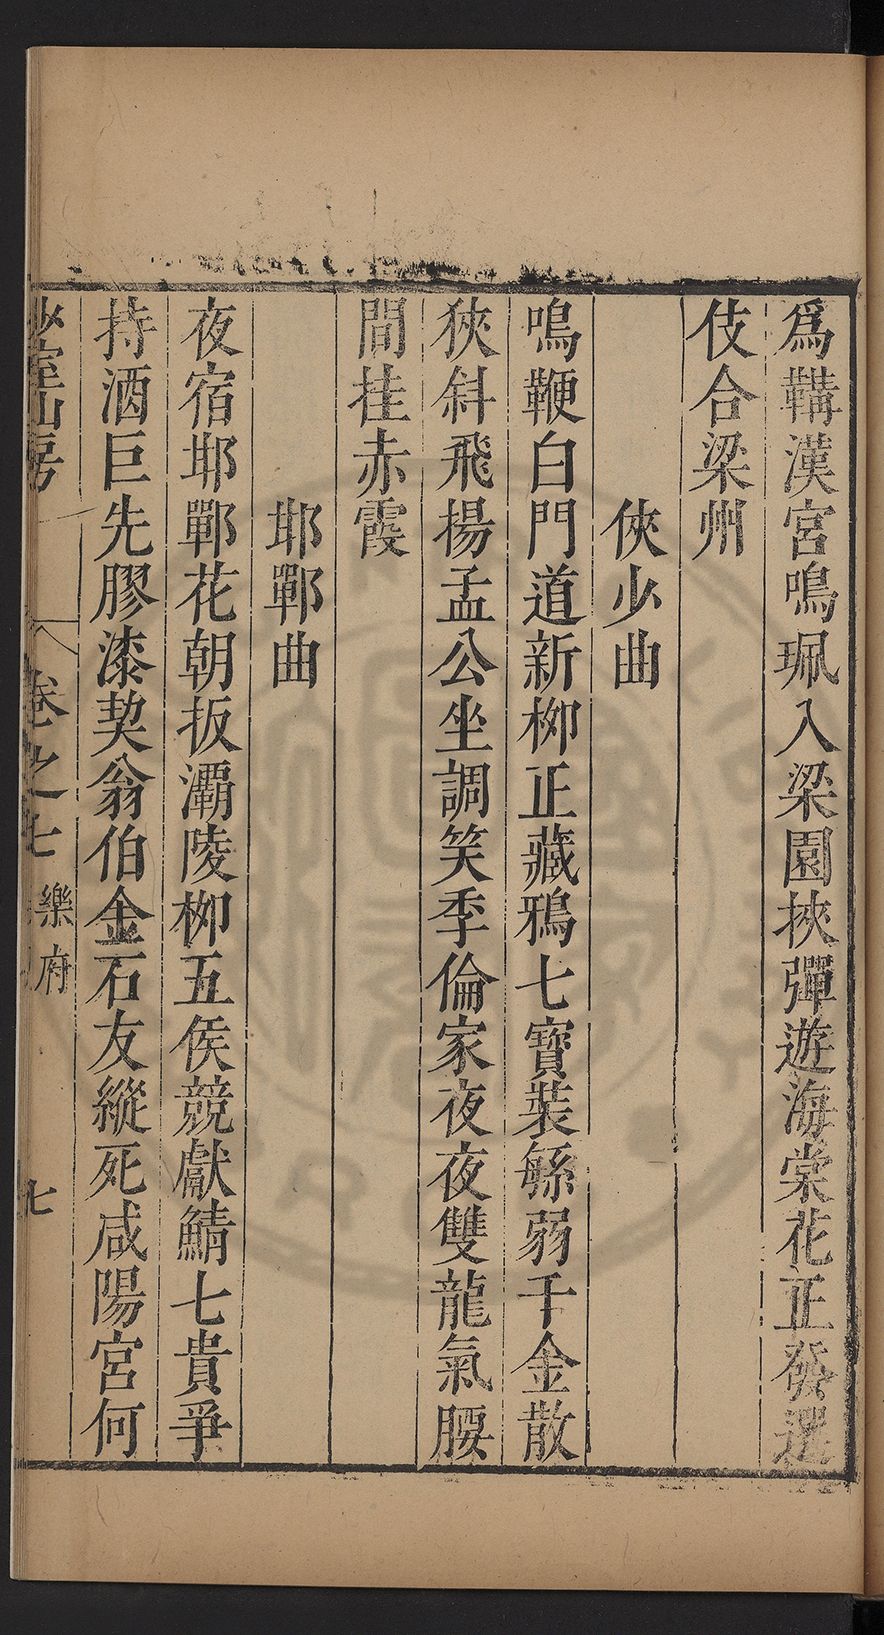 爲鞲漢宮鳴珮入梁園挾彈遊海棠花正發選
伎合梁州
俠少曲
鳴鞭白門道新栁正藏鴉七寶裝緐弱千金散
狹斜飛揚孟公坐調笑季倫家夜夜雙龍氣腰
間挂赤霞
邯鄲曲
夜宿邯鄲花朝扳灞陵栁五侯競獻鯖七貴爭
持酒巨先膠漆契翁伯金石友縱死咸陽宮何
少室山房
卷之七 樂府
七